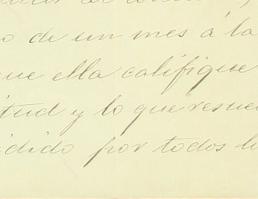 o de un mes á la
ue ella califique
itud y lo que resue
dido por todos l